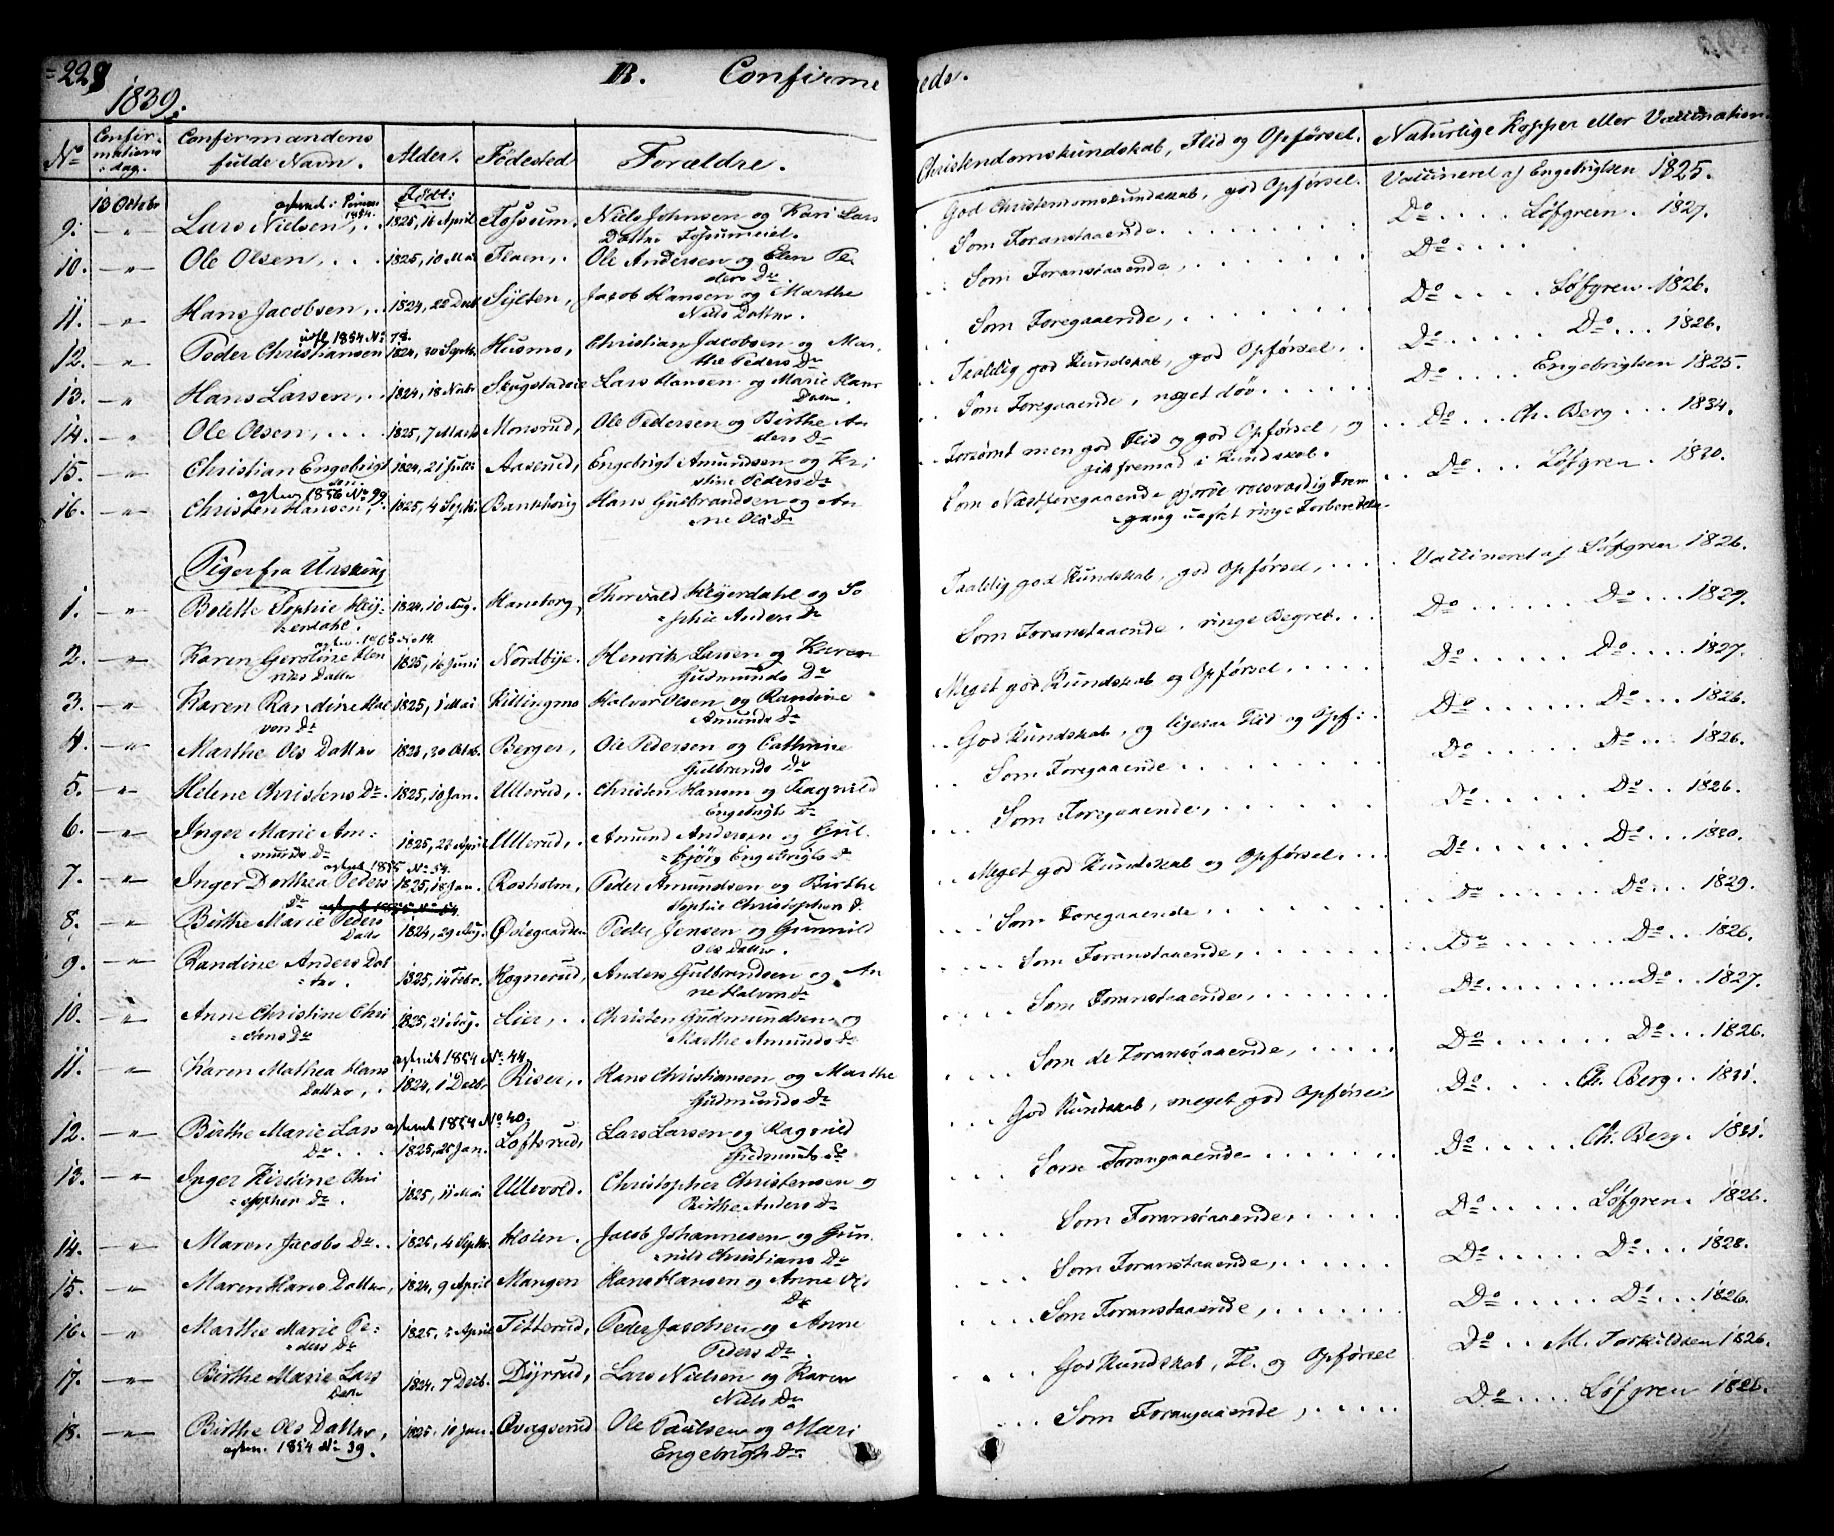 229
B. Confirmerede.
1839.
No
Confirmations dag.
Confirmandens fulde Navn.
Alder.
Fødested
Forældre.
Christendomskundskab, Flid og Opførsel.
Naturlige Kopper eller Vaccination.
13 Octobr Født:
9. " Lars Nielsen, 1825, 16 April Fossum, Niels Johnsen og Kari Lars God Christendomskundskab, god Opførsel. Vaccineret af Engebrigtsen 1825.
Datter Fossumeiel.
10. " Ole Olsen, 1825, 10 Mai Floen, Ole Andersen og Elen Pe Som Foranstaaende. Do Løfgreen. 1827.
ders Dr
11. " Hans Jacobsen, 1824, Decb Sylten, Jacob Hansen og Marthe Som Foranstaaende, Do
Niels Datter.
12. " Peder Christiansen 1824, 30 Septb. Husmo, Christian Jacobsen og Mar- Som Foregaaende, Do Løfgren 1826.
1854 No 78.
the Peders Dr
13. " Hans Larsen, 1824, 18 Novb Lars Hansen og Marie Hans Taalelig god Kundskab, god Opførsel, Do Do 1826.
Datter.
14. " Ole Olsen, 1825, 7 Marts Monsrud, Ole Pedersen og Birthe An Som Foregaaende, noget døv. Do Engebrigtsen 1825.
ders Dr
15. " Christian Engebrigt 1824, 21 Aaserud, Engebrigt Amundsen og Kri Forsømt men god Flid og god Opførsel, og Do Ch. Berg 1834.
sen. stine Peders Dr gik fremad i Kundskab.
1856 No 99.
16. " Christen Hansen, 1825, 4 Septb. Hans Gulbrandsen og An Som Næstforegaaende gjorde Frem Do Løfgren. 1830.
ne Ols Dr gang uagtet ringe
Piger fra Urskoug
1. " Bolette Sophie Hey 1824, 10 Aug. Haneborg, Thorvald Heyerdahl og So Taalelig god Kundskab, god Opførsel, Vaccineret af Løfgren 1826.
erdahl. phie Anders Dr
2. " Karen Geroline Hen 1825, 16 Juni Nordbye. Henrik Larsen og Karen Som Foranstaaende. ringe Begreb. Do Do 1829.
riks Datter Gudmunds Dr
3. " Karen Randine Hal 1825, 1 Mai Killingmo Halvor Olsen og Randine Meget god Kundskab og Opførsel, Do Do 1827.
vors Dr Amunds Dr
4. " Marthe Ols Datter 1824, 30 Octb. Berger, Ole Pedersen og Cathrine God Kundskab, og ligesaa Flid og Opf: Do Do 1826.
Gulbrands Dr
5. " Helene Christens Dr. 1825, 10 Jan. Ullerud, Christen Hansen og Ragnild Som Foregaaende Do Do 1826.
Engebrigts Dr
6. " Inger Marie Am- 1825, 22 April Ullerud, Amund Andersen og Gul- Som Foregaaende, Do Do 1826.
munds Dr bjørg Engebrigts Dr
1855 No 54.
7. " Inger Dorthea Peders 1825, 18 Jan. Rosholm, Peder Amundsen og Birthe Meget god Kundskab og Opførsel. Do Do 1830.
Dr Sophie Christophers D.
8. " Birthe Marie Peders 1824, 29 Aug. Ødegaarden Peder Jensen og Gunnild Som Foregaaende, Do Do 1829.
Datter Ols Datter.
9. " Randine Anders Dat 1825, 14 Febr. Kognerud, Anders Gulbrandsen og An Som Foranstaaende, Do Do 1826.
ter. ne Halvors Dr
10. " Anne Christine Chri 1825, 21 Aug. Lier, Christen Gudmundsen og Som Foranstaaende, Do Do 1827.
stens Dr Marthe Amunds Dr
1854 No 44.
11. " Karen Mathea Hans 1824, 1 Decbr Riser, Hans Christiansen og Marthe Som de Foranstaaende, Do Do 1826.
Datter, Gudmunds Dr
1854 No 40.
12. " Birthe Marie Lars 1825, 25 Jan. Loftsrud, Lars Larsen og Ragnild God Kundskab, meget god Opførsel Do Ch. Berg 1831.
Dr Gudmunds Dr
13. " Inger Kirstine Chri 1825, 11 Mai Ullevold. Christopher Christensen og Som Forangaaende Do Ch. Berg. 1831.
stopher Dr. Birthe Anders Dr
14. " Maren Jacobs Dr. 4 Septbr. Holen. Jacob Johannesen og Gun- Som Foranstaaende, Do Løfgren. 1826.
nild Christians Dr
15. " Maren Hans Datter, 1824, 9 April Mangen Hans Hansen og Anne Ols Som Foranstaaende, Do Do 1828.
Dr
16. " Marthe Marie Pe- 1825. April Fitterud, Peder Jacobsen og Anne Som Foranstaaende, Do Do 1826.
ders Dr Peders Dr.
17. " Birthe Marie Lars 1824. 7 Decb. Dyrrud, Lars Nielsen og Karen God Kundskab, Fl. og Opførsel Do M. Torkildsen 1826.
Datter Niels Dr
18. " Birthe Ols Datter, 1825. 10 Jan. Qvagserud Ole Paulsen og Mari Som Forangaaende, Do Løfgren 1826.
1854 No 39. Engebrigts Dr.